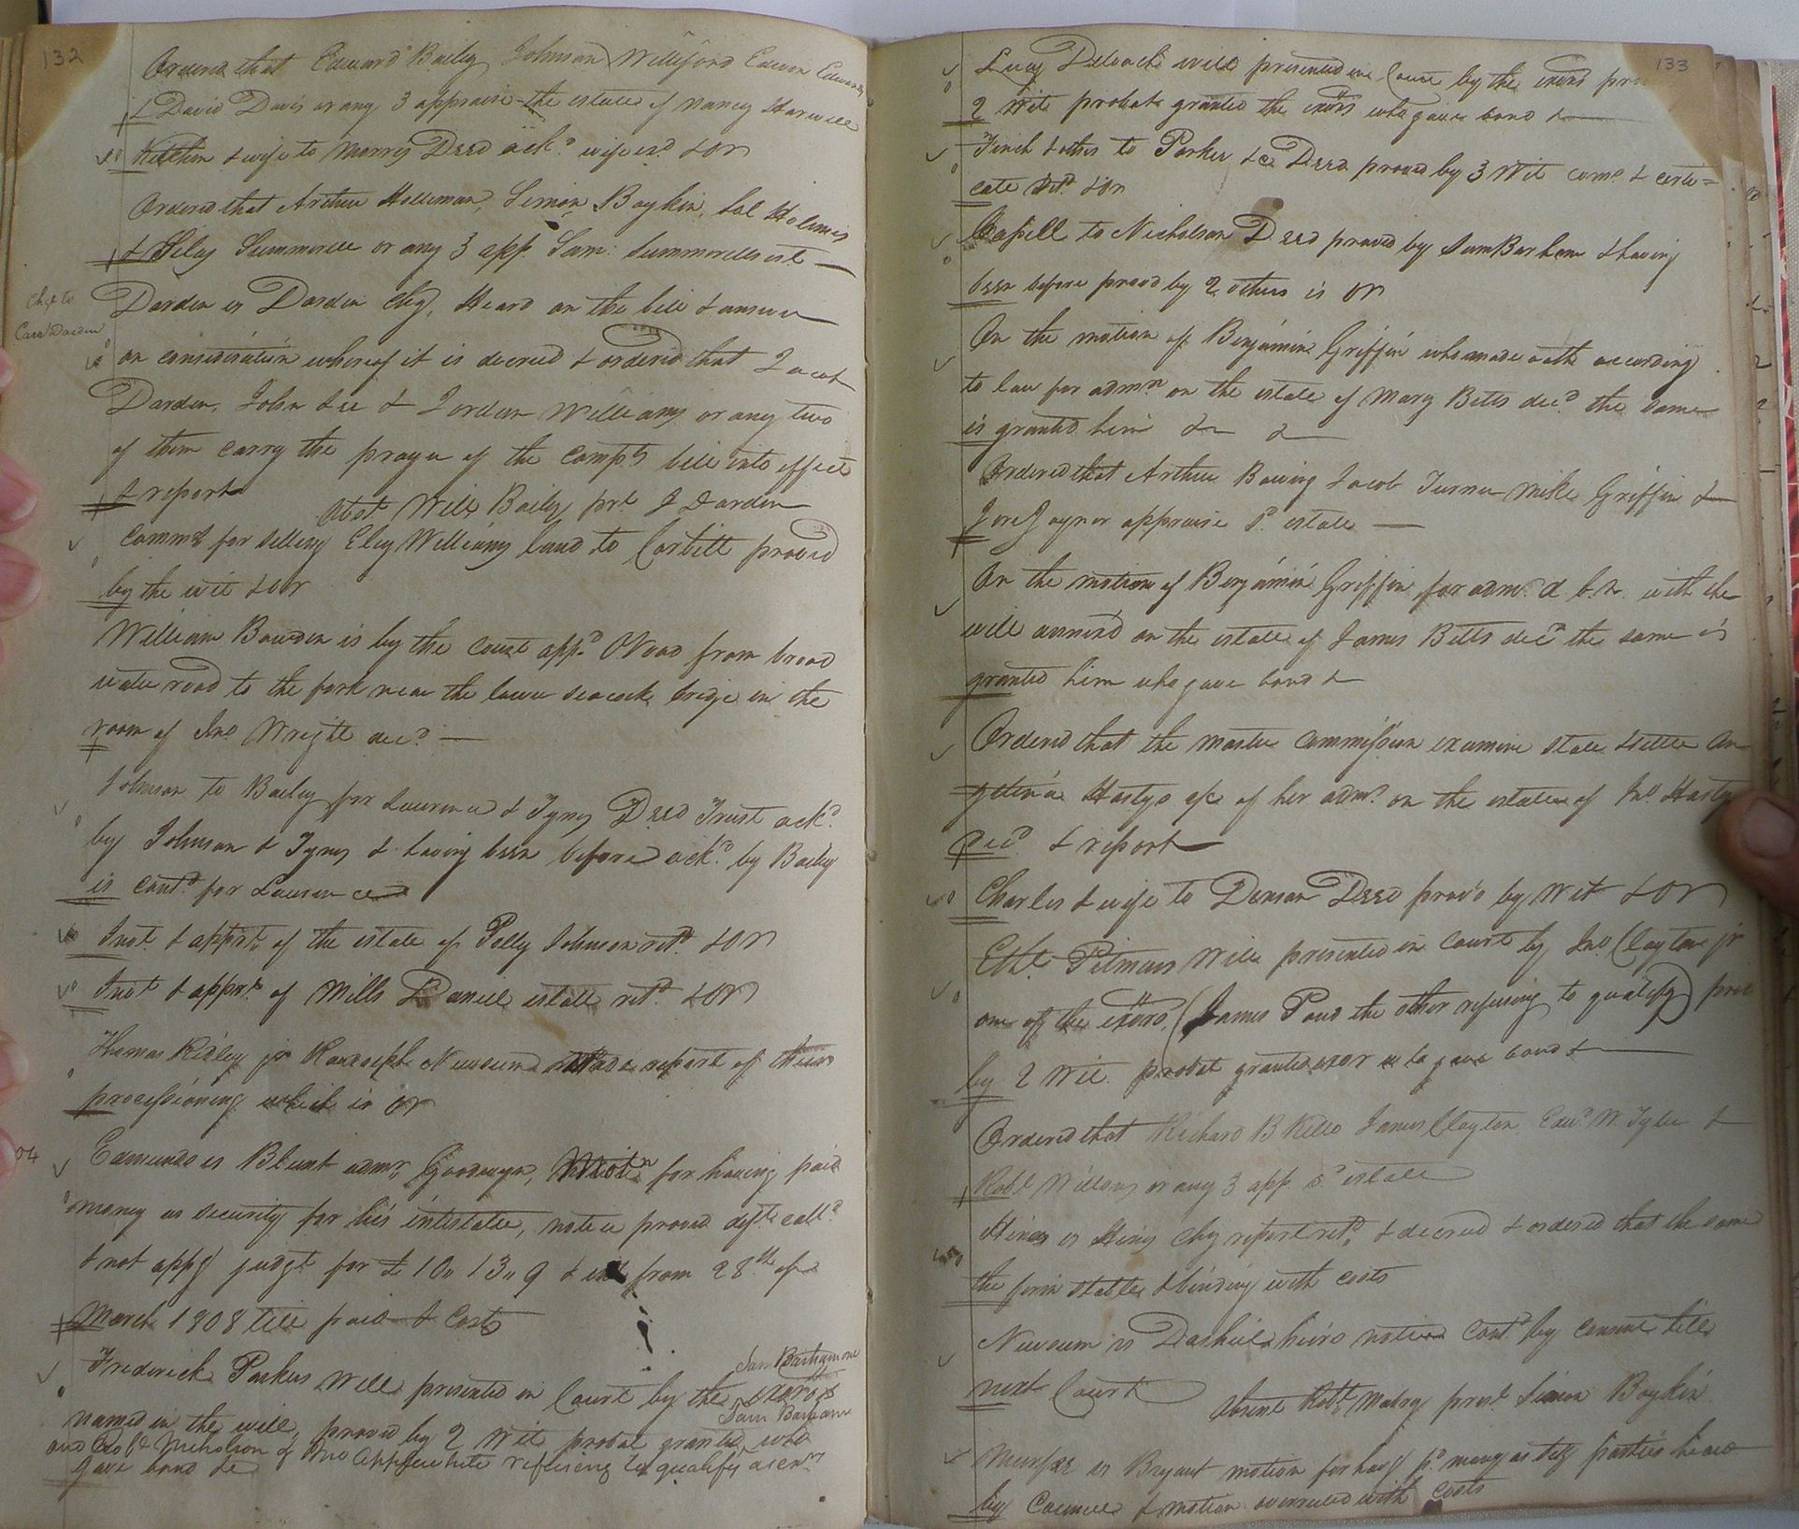 132
Ordered that Edward Baily Johnson Williford Edwin Edwards
& David Davis or any 3 appraise the estate of Nancy Harwell
Kitchen & wife to Morris Deed ack.d wife ex.d & OR
Ordered that Arthur Holleman, Simon Boykin, Sol Holmes
& Silas Summerell or any 3 app. Sam: Summerells est
Darden vs Darden Chy. Heard on the bill & answer
Chy to
Carr Darden
on consideration whereof it is decreed & ordered that Jacob
Darden, John Lee & Jordan Williams or any two
of them carry the prayer of the Compts bill into effect
& report
abst Will Baily prt J Darden
Commn for selling Eley Williams land to Corbitt proved
by the wit & OR
William Bowden is by the Court app.d OVoad from broad
water road to the fork near the lower seacock bridge in the
room of Jno Wright dec.d
Johnson to Baily for Laurence & Tynes Deed Trust ack.d
by Johnson & Tynes & having been before ack.d by Baily
is cont.d for Laurence
Invt & apprt of the estate of Polly Johnson ret.d & OR
Invt & apprt of Mills Daniel estate ret.d & OR
Thomas Ridley jr Randolph Newsum made report of their
processioning which is OR
04
Edmunds vs Blunt admr Goodwyn, Motn for having paid
money as security for his intestate, notice proved deft call.d
& not appg judgt for £ 10 " 13 " 9 & int from 28th of
March 1808 till paid & Costs
Frederick Parkers Will presented in Court by the exors
Sam Barham one
named in the will, proved by 2 Wit probat granted who
Sam Barham
and Rob.t Nicholson of the App refusing to qualify as exr
gave bond &c
133
Lucy Deloach will presented in Court by the exors pro
2 Wit probat granted the exors who gave bond &
Finch & others to Parker &c Deed proved by 3 Wit comn & certi=
cate ret.d & OR
Capell to Nicholson Deed proved by Sam Barham & having
been before proved by 2 others is OR
On the motion of Benjamin Griffin who made oath according
to law for admn on the estate of Mary Betts dec.d the same
is granted him & &
Ordered that Arthur Bowing Jacob Turner Mike Griffin &
Jore Joyner appraise s.d estate
On the motion of Benjamin Griffin for admn d b. n. with the
will annex'd on the estate of James Betts dec.d the same is
granted him who gave bond &
Ordered that the master commissioner examine state & settle An
gelina Hastys a/c of her admn on the estate of Jno Hasty
dec.d & report
Charles & wife to Denson Deed prov'd by Wit & OR
Eth.l Pitmans Will presented in Court by Jno Clayton jr
one of the exors, (James Pond the other refusing to qualify) prov
by 2 Wit. probat granted exor who gave bond &
Ordered that Richard B Kello James Clayton Edw.d W. Tyler &
Rob.t Willans or any 3 app s.d estate
Hines vs Hines Chy report ret.d & decreed & ordered that the same
the firm stable & binding with costs
Newsum vs Dashiel heirs notice cont.d by consent till
next Court
Absent Rob.t Mabry pres.t Simon Boykin
vs Bryant motion for havg p.d money as secy parties heard
by Counsel & motion overruled with costs